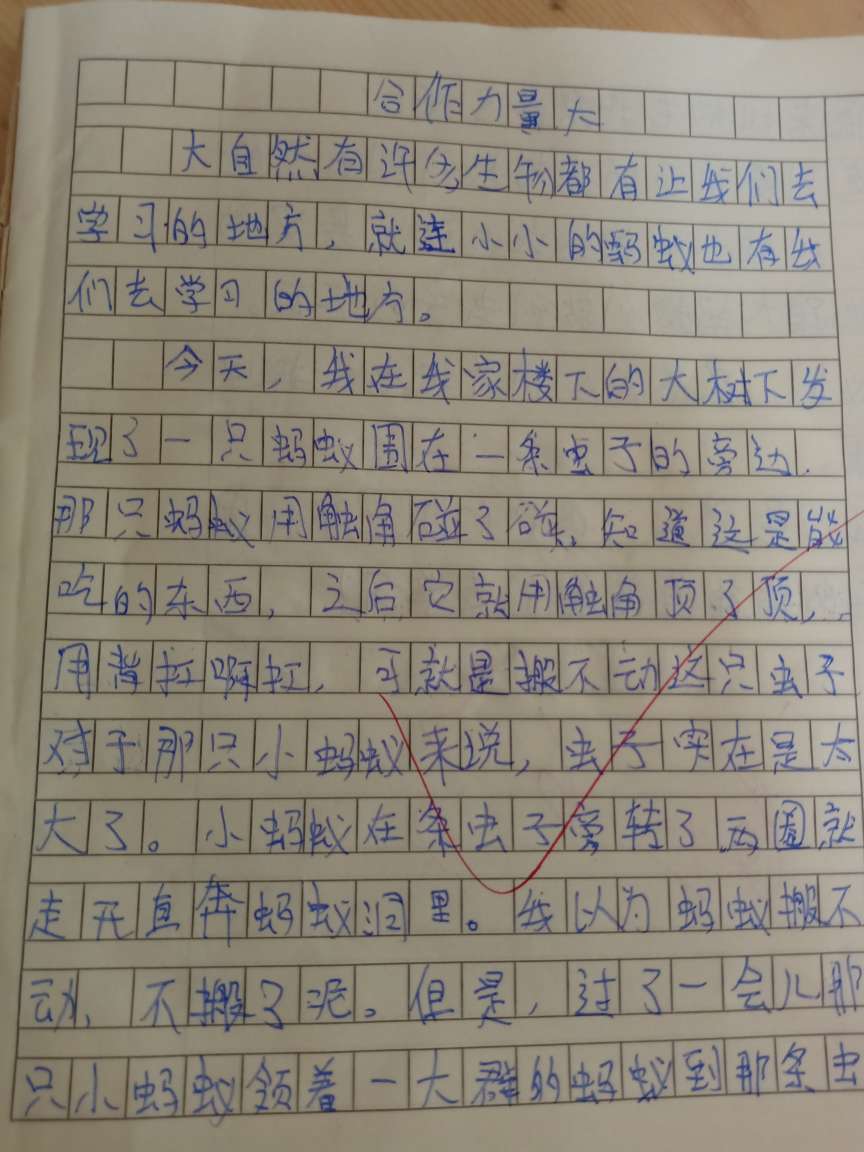 合作力量大
大自然有许多生物都有让我们去
学习的地方，就连小小的蚂蚁也有我
们去学习的地方。
今天，我在我家楼下的大树下发
现了一只蚂蚁围在一条虫子的旁边.
那只蚂蚁用触角碰了碰、知道这是能
吃的东西，之后它就用触角顶了顶，
用背扛啊扛，可就是搬不动这只虫子
对于那只小蚂蚁来说，虫子实在是太
大了。小蚂蚁在条虫子旁转了两圈就
走开直奔蚂蚁洞里。我以为蚂蚁搬不
动、不搬了泥。但是，过了一会儿那
只小蚂蚁领着一大群的蚂蚁到那条虫